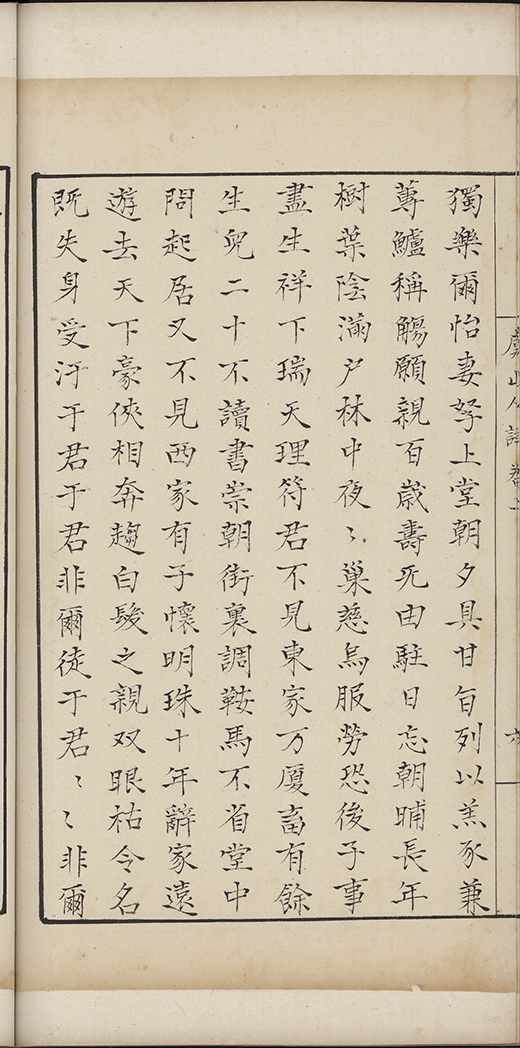 獨樂爾怡妻孥上堂朝夕具甘旨列以羔豕兼
蓴鱸稱觴願親百歲壽死由駐日忘朝晡長年
樹葉陰滿户林中夜〻巢慈烏服勞恐後子事
盡生祥下瑞天理符君不見東家万廈畜有餘
生兒二十不讀書崇朝街裏調鞍馬不省堂中
問起居又不見西家有子懷明珠十年辭家遠
遊去天下豪俠相奔趨白髮之親双眼枯令名
既失身受汙于君于君非爾徒于君〻〻非爾
虞山人詩卷上